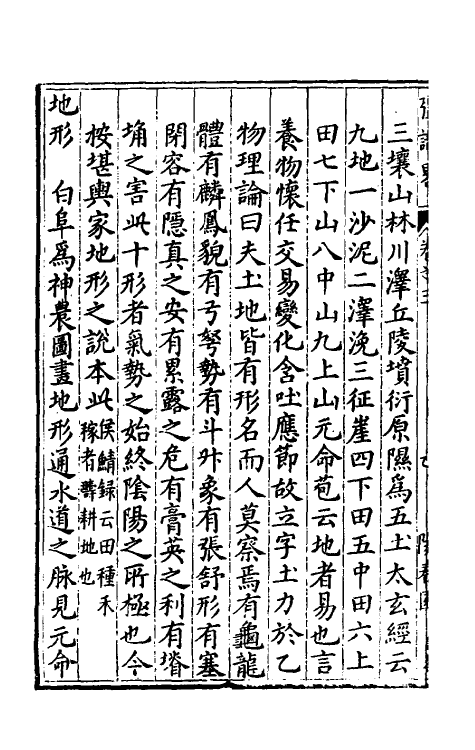 三壤山林川澤丘陵墳衍原隰爲五土太玄經云
九地一沙泥二澤浼三征崖四下田五中田六上
田七下山八中山九上山元命苞云地者易也言
養物懷任交易變化含吐應節故立字土力於乙
物理論曰夫土地皆有形名而人莫察焉有龜龍
體有麟鳳貌有弓弩勢有斗升象有張舒形有塞
閉容有隱真之安有累露之危有膏英之利有塉
埆之害此十形者氣勢之始終陰陽之所極也今
按堪輿家地形之說本此侯鯖録云田種禾
稼者爵耕地也
地形　白阜爲神農圖畫地形通水道之脉見元命